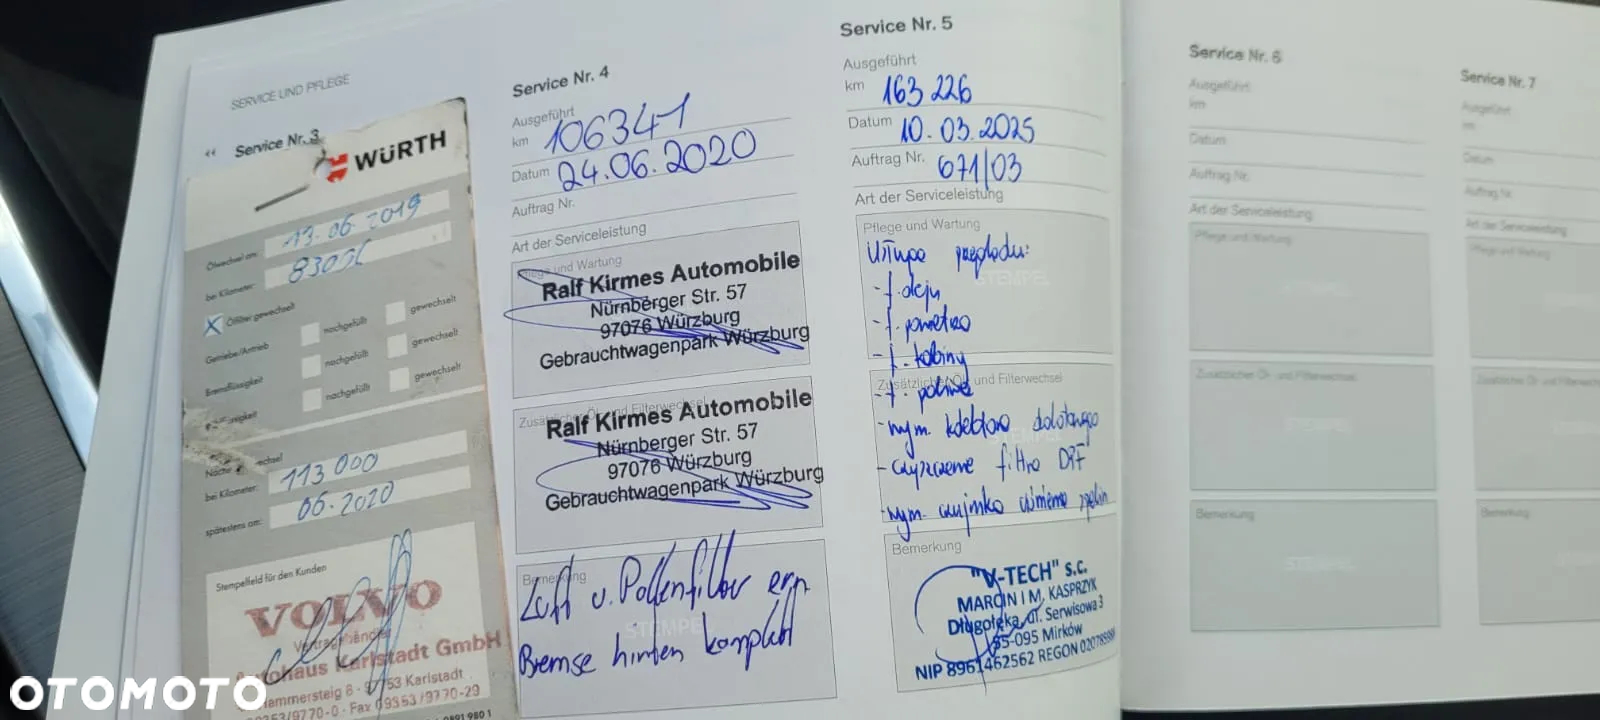 SERVICE UND PFLEGE
Service Nr. 3
WÜRTH
Ölwechsel am: 13.06.2019
bei Kilometer:
Ölfilter gewechselt
Getriebe/Antrieb nachgefüllt gewechselt
Bremsflüssigkeit nachgefüllt gewechselt
nachgefüllt gewechselt
bei Kilometer: 113 000
spätestens am: 06.2020
Stempelfeld für den Kunden
VOLVO
Vertragshändler
Autohaus Karlstadt GmbH
Hammersteig 6 - 97753 Karlstadt
09353/9770-0 - Fax 09353/9770-29
0891 980 1
Service Nr. 4
Ausgeführt
km 106341
Datum 24.06.2020
Auftrag Nr.
Art der Serviceleistung
Pflege und Wartung
Ralf Kirmes Automobile
Nürnberger Str. 57
97076 Würzburg
Gebrauchtwagenpark Würzburg
Zusätzlicher Öl- und Filterwechsel
Ralf Kirmes Automobile
Nürnberger Str. 57
97076 Würzburg
Gebrauchtwagenpark Würzburg
Bemerkung
Luft u. Pollenfilter ern.
STEMPEL
Bremse hinten komplett
Service Nr. 5
Ausgeführt
km 163 226
Datum 10.03.2025
Auftrag Nr. 671/03
Art der Serviceleistung
Pflege und Wartung
Usługa przeglądu:
STEMPEL
- f. oleju
- f. powietrza
- f. kabiny
Zusätzlicher Öl- und Filterwechsel
- f. paliwa
- wym. kolektora dolotowego
STEMPEL
- czyszczenie filtra DPF
- wym. czujnika ciśnienia spalin
Bemerkung
"V-TECH" s.c.
MARCIN I M. KASPRZYK
Długołęka, ul. Serwisowa 3
55-095 Mirków
NIP 8961462562 REGON
Service Nr. 6
Ausgeführt
km
Datum
Auftrag Nr.
Art der Serviceleistung
Pflege und Wartung
STEMPEL
Zusätzlicher Öl- und Filterwechsel
STEMPEL
Bemerkung
STEMPEL
Service Nr. 7
Ausgeführt
km
Datum
Auftrag Nr.
Art der Serviceleistung
Pflege und Wartung
Zusätzlicher Öl- und Filterwechsel
Bemerkung
OTOMOTO